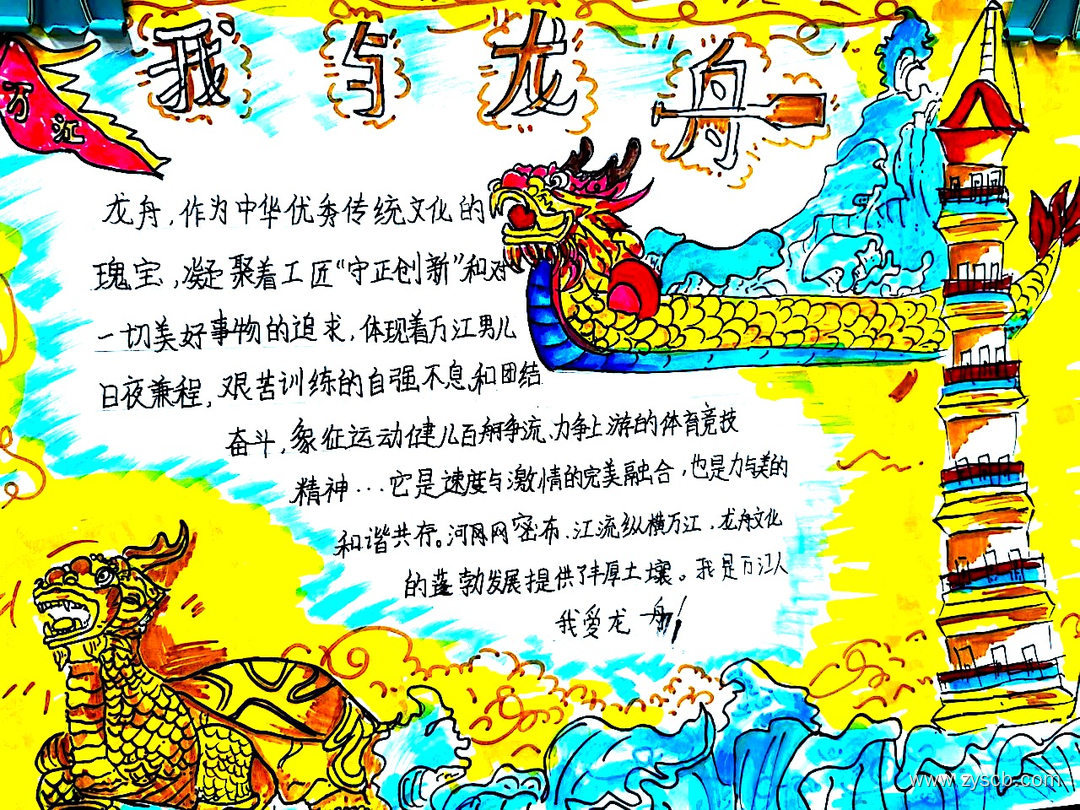 我与龙舟
万江
龙舟，作为中华优秀传统文化的
瑰宝，凝聚着工匠“守正创新”和对
一切美好事物的追求，体现着万江男儿
日夜兼程，艰苦训练的自强不息和团结
奋斗，象征运动健儿百舸争流，力争上游的体育竞技
精神...它是速度与激情的完美融合，也是力与美的
和谐共存。河网网密布、江流纵横万江，龙舟文化
的蓬勃发展提供了丰厚土壤。我是万江人
我爱龙舟！
www.zyscb.com